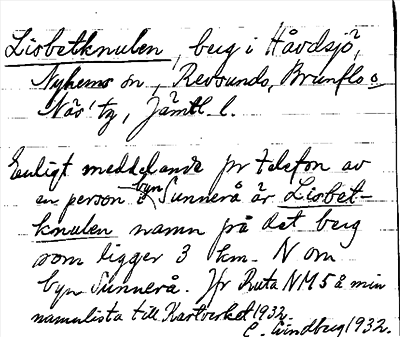 Lisbetknulen, berg i Håvdsjö,
Nyhems sn, Revsunds, Brunflo o
Näs' tg, Jämtl. l.
Enligt meddelande pr telefon av
en person i byn Sunnerå är Lisbet-
knulen namn på det berg
som ligger 3 km. N om
byn Sunnerå. Jfr Ruta NM 5 å min
namnlista till Kartverket 1932.
C. Lindberg 1932.